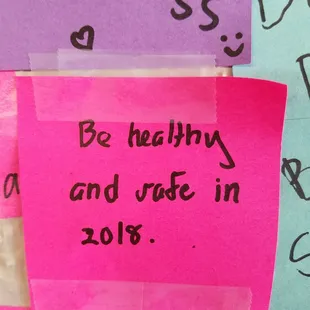 ss
Be healthy
and safe in
2018.